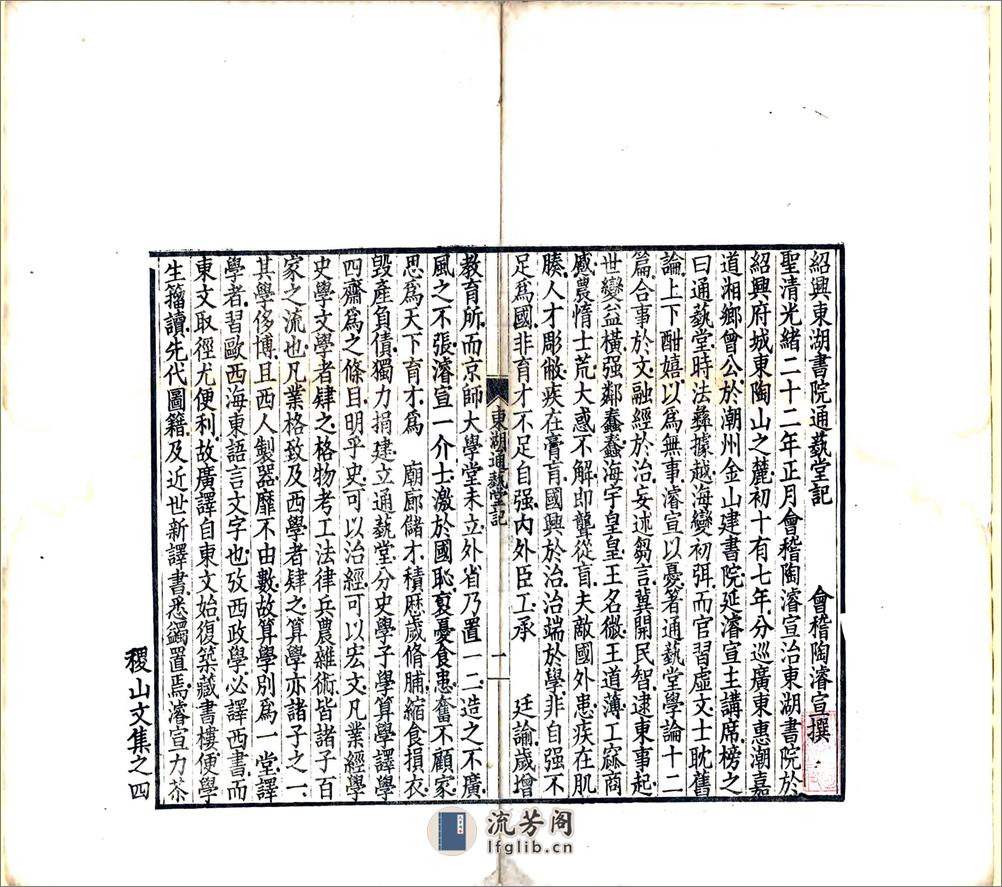 紹興東湖書院通蓺堂記　會稽陶濬宣撰
聖清光緒二十二年正月會稽陶濬宣治東湖書院於
紹興府城東陶山之麓初十有七年分巡廣東惠潮嘉
道湘鄉曾公於潮州金山建書院延濬宣主講席榜之
曰通蓺堂時法彝據越海變初弭而官習虛文士耽舊
論上下酣嬉以爲無事濬宣以憂著通蓺堂學論十二
篇合事於文融經於治妄述芻言冀開民智逮東事起
世變益橫强鄰蠢蠢海宇皇皇王名微王道薄工窳商
慼農惰士荒大惑不解即聾從盲夫敵國外患疾在肌
腠人才彫敝疾在膏肓國興於治治端於學非自强不
足爲國非育才不足自强内外臣工承　廷諭歲增
東湖通蓺堂記
一
教育所而京師大學堂未立外省乃置一二造之不廣
風之不張濬宣一介士激於國恥裒憂食患奮不顧家
思爲天下育才爲　廟廊儲才積歷歲脩脯縮食損衣
毀產負債獨力捐建立通蓺堂分史學子學算學譯學
四齋爲之條目明乎史可以治經可以宏文凡業經學
史學文學者肄之格物考工法律兵農雜術皆諸子百
家之流也凡業格致及西學者肄之算學亦諸子之一
其學侈博且西人製器靡不由數故算學別爲一堂譯
學者習歐西海東語言文字也攷西政學必譯西書而
東文取徑尤便利故廣譯自東文始復築藏書樓便學
生籀讀先代圖籍及近世新譯書悉蠲置焉濬宣力茶
稷山文集之四
流芳阁
lfglib.cn